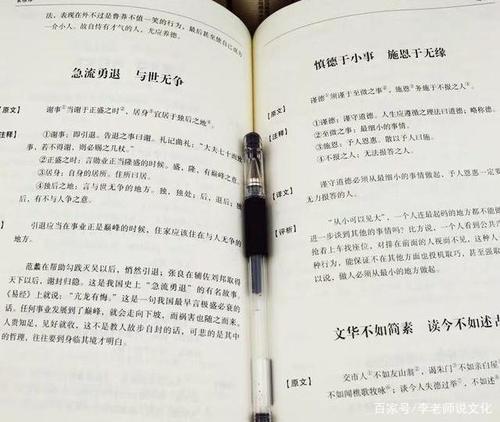 法，表现在外不过是鲁莽不值一笑的行为，最后甚至惹自己成为
一介小人。故自恃有才气的人，尤应养德。
急流勇退 与世无争
【原文】
谢事①当谢于正盛之时②，居身③宜居于独后之地④。
【注释】
①谢事：即引退。告退之事曰谢。礼记曲礼："大夫七十而
事，若不得谢，则必赐之几杖。"
②正盛之时：言勋业正当隆盛的时候。盛，隆，有巅峰意思。
③居身：自身的居所。住所曰居。
④独后之地：言与世无争的地方。独，独处；后，退后；独
后，有不与人争之意。
引退应当在事业正是巅峰的时候，住家应该住在与人无争的
地方。
范蠡在帮助勾践灭吴以后，悄然引退；张良在辅佐刘邦取得
天下以后，谢封归隐。这是我国史上"急流勇退"的有名故事，
《易经》上就说："亢龙有悔。"这是一句我国最早言极盛必衰的
话。任何事业发展到了巅峰，就会走向下坡，而祸害也随之而来。
人贵知足，见好就收，这不是教人故步自封的话，可悲的是其中
的哲理，往往要到身临其境才明白。
慎德于小事 施恩于无缘
【原文】
谨德①须谨于至微之事②，施恩③务施于不报之人④。
【注释】
①谨德：谨守道德。人生应遵循之理法曰道德；略称德。
②至微之事：最细小的事情。
③施恩：予人恩惠。散以予人曰施。
④不报之人：无法报答的人。
【译文】
谨守道德必须从最细小的事情做起，予人恩惠一定要
无力报答的人。
【评析】
"从小可以见大"，一个人连最起码的地方都不能做
进一步谈到其他的事情吗？比方说，一个人看到公共汽
抢着上车找座位，对排在前面的人视而不见，这种人
种行为，能保证不在其他方面也投机取巧，甚至强取
以说，做人必须从最小的地方做起。
文华不如简素 读今不如述古
【原文】
交市人①不如友山翁②，谒朱门③不如亲白屋
不如闻樵歌牧咏；谈今人失德过举，不如述
百家号/李老师说文化